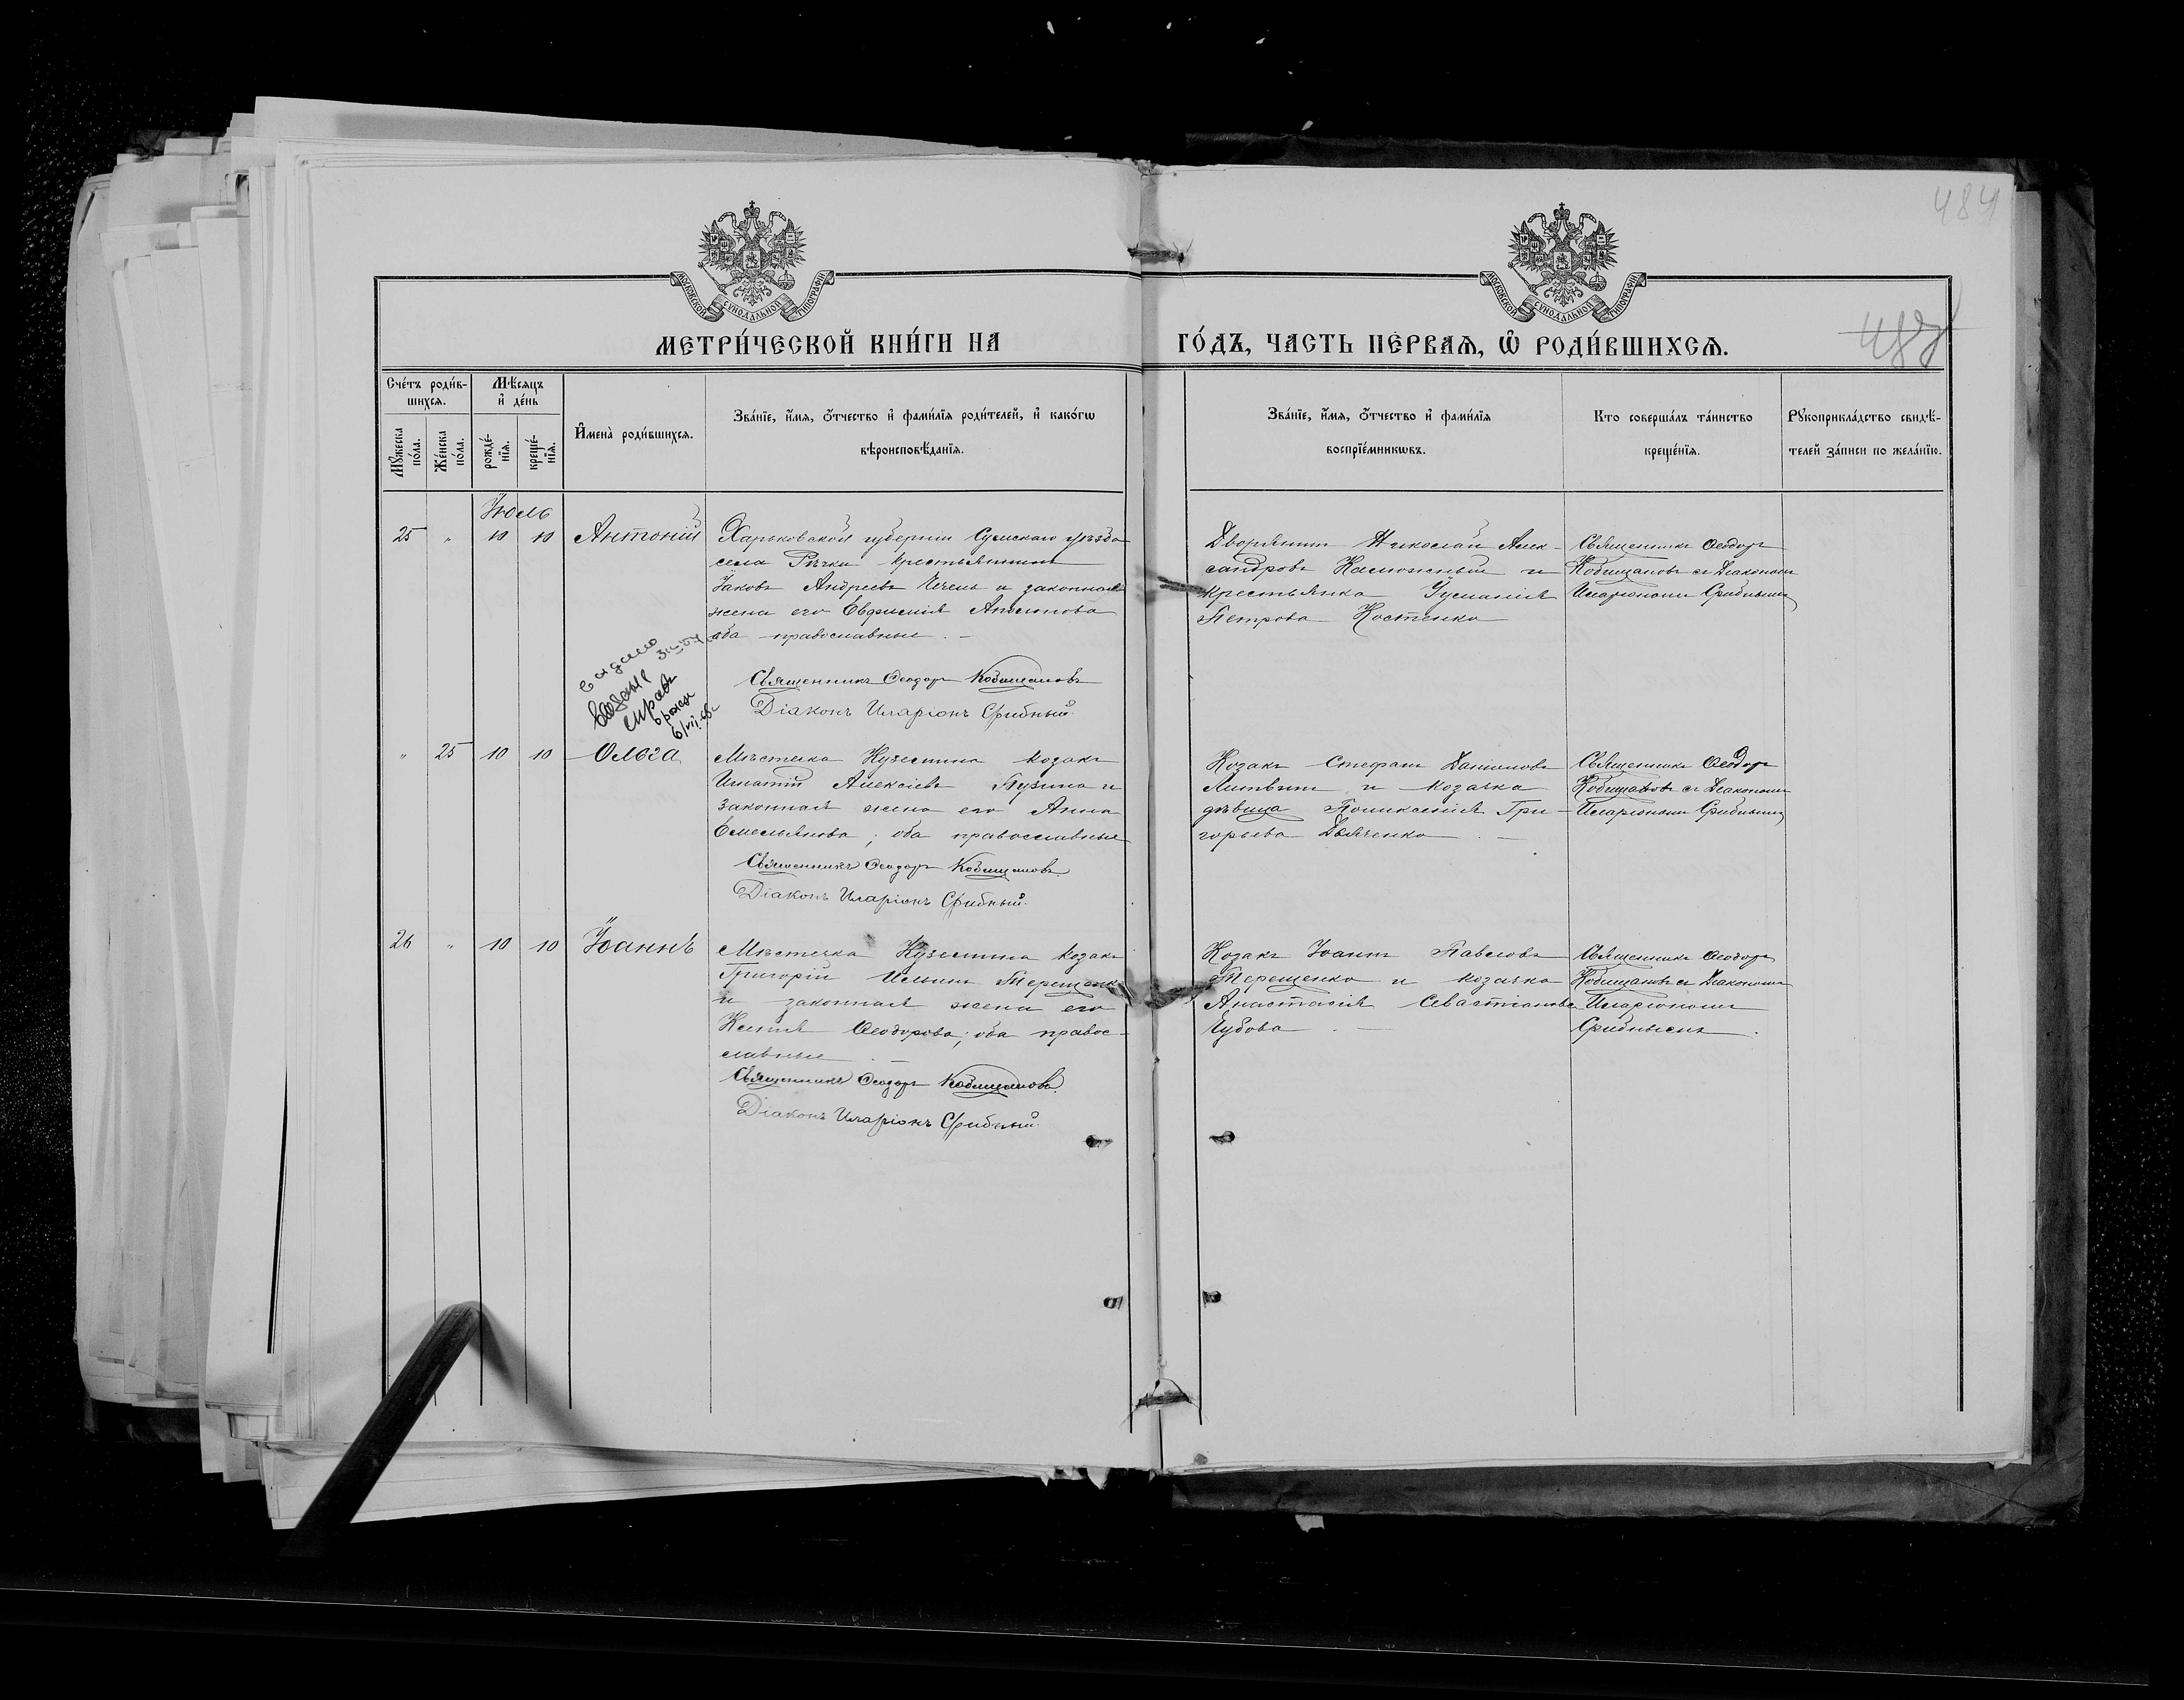 484
МОСКОВСКОЙ СѴНОДАЛЬНОЙ ТИПОГРАФІИ
МОСКОВСКОЙ СѴНОДАЛЬНОЙ ТИПОГРАФІИ
МЕТРИ́ЧЕСКОЙ КНИ́ГИ НА
ГО́ДЪ, ЧАСТЬ ПЕ́РВАѦ, Ѿ РОДИ́ВШИХСѦ.
Сче́тъ роди́в-
шихсѧ.
Мѣ́сѧцъ
и҆ де́нь
Мꙋ́жеска
по́ла.
Же́нска
по́ла.
рожде́-
нїѧ.
креще́-
нїѧ.
И҆мена̀ роди́вшихсѧ.
Зва́нїе, и҆́мѧ, ѻ҆́тчество и҆ фами́лїѧ роди́телей, и҆ како́гѡ
вѣроисповѣ́данїѧ.
Зва́нїе, и҆́мѧ, ѻ҆́тчество и҆ фами́лїѧ
воспрїе́мникѡвъ.
Кто соверша́лъ та́инство
креще́нїѧ.
Рꙋкоприкла́дство свидѣ́-
телей за́писи по жела́нїю.
Іюль
25 " 10 10 Антоній
Харьковской губерніи Сумскаго уѣзда
села Рѣчки крестьянинъ
Іаковъ Андреевъ и законная
жена его Евфимія Антонова
оба православные. —
Священникъ Ѳеодоръ Кобищановъ
Діаконъ Иларіонъ Срибный.
Дворянинъ Николай Алек-
сандровъ и
крестьянка
Петрова Костенко
Священникъ Ѳеодоръ
Кобищановъ съ Діакономъ
Иларіономъ Срибнымъ
" 25 10 10 Ольга
Мѣстечка Куземина козакъ
Игнатій Алексіевъ Пузина и
законная жена его Анна
Емельянова; оба православные
Священникъ Ѳеодоръ Кобищановъ
Діаконъ Иларіонъ Срибный.
Козакъ Стефанъ Даніиловъ
Литвинъ и козачка
дѣвица Поликсенія Гри-
горьева Дьяченко. —
Священникъ Ѳеодоръ
Кобищановъ съ Діакономъ
Иларіономъ Срибнымъ
26 " 10 10 Іоаннъ
Мѣстечка Куземина козакъ
Григорій Ильинъ Терещенко
и законная жена его
Ксенія Ѳеодорова; оба правос-
лавные. —
Священникъ Ѳеодоръ Кобищановъ.
Діаконъ Иларіонъ Срибный.
Козакъ Іоаннъ Павловъ
Терещенко и козачка
Анастасія Севастіанова
Чубова. —
Священникъ Ѳеодоръ
Кобищановъ съ Діакономъ
Иларіономъ
Срибнымъ.